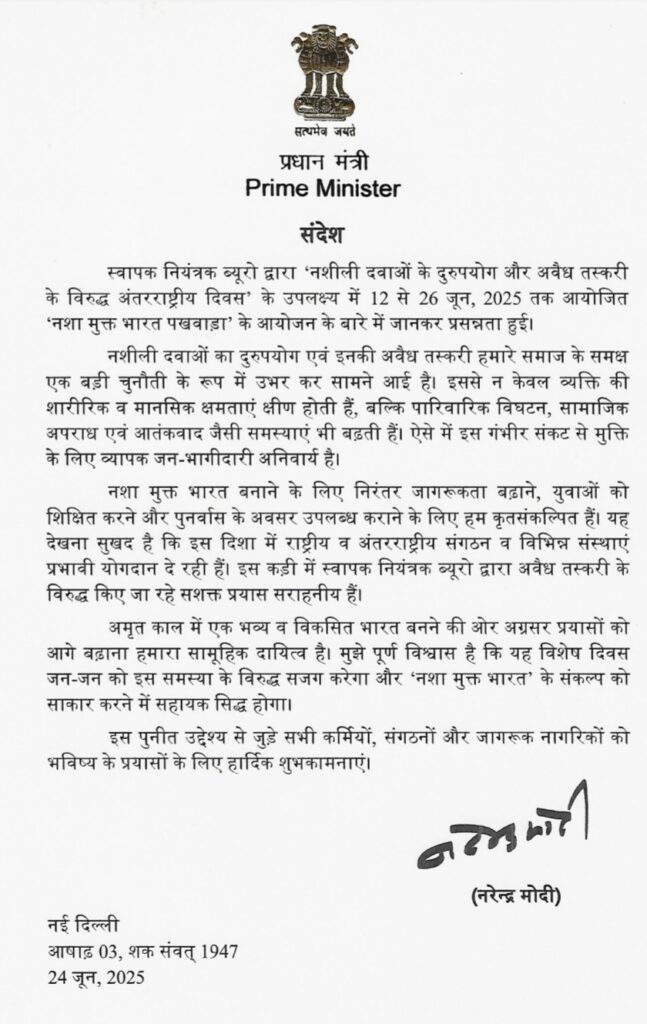 सत्यमेव जयते
प्रधान मंत्री
Prime Minister
संदेश
स्वापक नियंत्रक ब्यूरो द्वारा ‘नशीली दवाओं के दुरुपयोग और अवैध तस्करी
के विरुद्ध अंतरराष्ट्रीय दिवस’ के उपलक्ष्य में 12 से 26 जून, 2025 तक आयोजित
‘नशा मुक्त भारत पखवाड़ा’ के आयोजन के बारे में जानकर प्रसन्नता हुई।
नशीली दवाओं का दुरुपयोग एवं इनकी अवैध तस्करी हमारे समाज के समक्ष
एक बड़ी चुनौती के रूप में उभर कर सामने आई है। इससे न केवल व्यक्ति की
शारीरिक व मानसिक क्षमताएं क्षीण होती हैं, बल्कि पारिवारिक विघटन, सामाजिक
अपराध एवं आतंकवाद जैसी समस्याएं भी बढ़ती हैं। ऐसे में इस गंभीर संकट से मुक्ति
के लिए व्यापक जन-भागीदारी अनिवार्य है।
नशा मुक्त भारत बनाने के लिए निरंतर जागरूकता बढ़ाने, युवाओं को
शिक्षित करने और पुनर्वास के अवसर उपलब्ध कराने के लिए हम कृतसंकल्पित हैं। यह
देखना सुखद है कि इस दिशा में राष्ट्रीय व अंतरराष्ट्रीय संगठन व विभिन्न संस्थाएं
प्रभावी योगदान दे रही हैं। इस कड़ी में स्वापक नियंत्रक ब्यूरो द्वारा अवैध तस्करी के
विरुद्ध किए जा रहे सशक्त प्रयास सराहनीय हैं।
अमृत काल में एक भव्य व विकसित भारत बनने की ओर अग्रसर प्रयासों को
आगे बढ़ाना हमारा सामूहिक दायित्व है। मुझे पूर्ण विश्वास है कि यह विशेष दिवस
जन-जन को इस समस्या के विरुद्ध सजग करेगा और ‘नशा मुक्त भारत’ के संकल्प को
साकार करने में सहायक सिद्ध होगा।
इस पुनीत उद्देश्य से जुड़े सभी कर्मियों, संगठनों और जागरूक नागरिकों को
भविष्य के प्रयासों के लिए हार्दिक शुभकामनाएं।
नरेन्द्र मोदी
(नरेन्द्र मोदी)
नई दिल्ली
आषाढ़ 03, शक संवत् 1947
24 जून, 2025